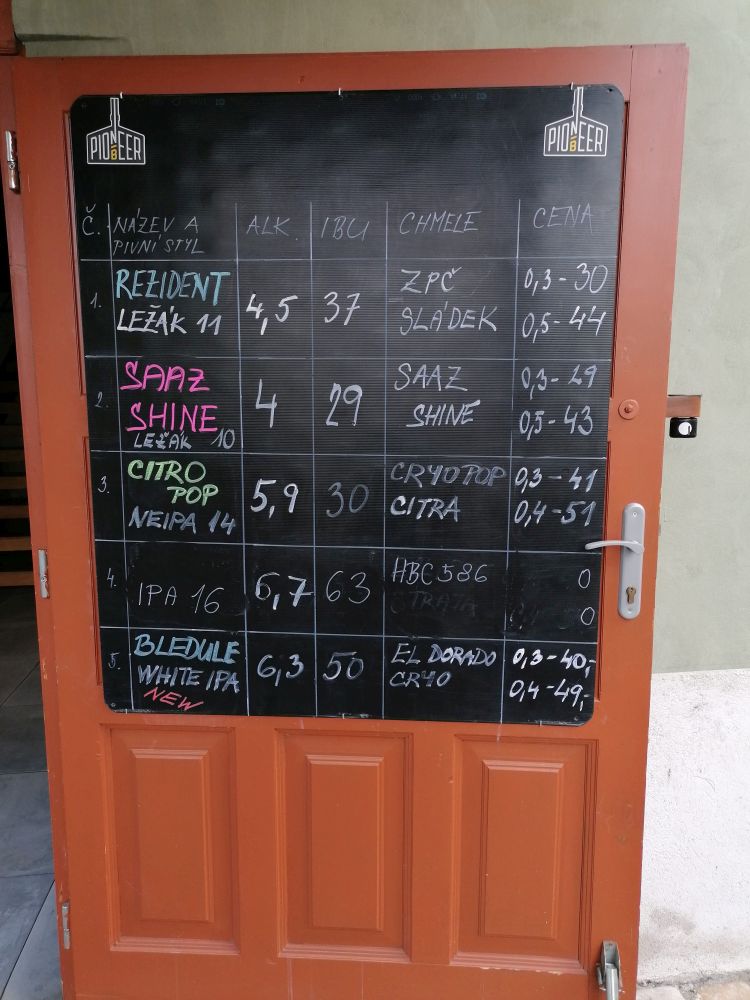 PIONEER PIONEER
B B
Č. NÁZEV A PIVNÍ STYL ALK IBU CHMELE CENA
1. REZIDENT 4,5 37 ZPČ 0,3-30
LEŽÁK 11 SLÁDEK 0,5-44
2. SAAZ 4 29 SAAZ 0,3-29
SHINE SHINE 0,5-43
LEŽÁK 10
3. CITRO 5,9 30 CRYOPOP 0,3-41
POP CITRA 0,4-51
NEIPA 14
4. IPA 16 6,7 63 HBC 586 0
STRATA 0
5. BLEDULE 6,3 50 EL DORADO 0,3-40,-
WHITE IPA CRYO 0,4-49,-
NEW